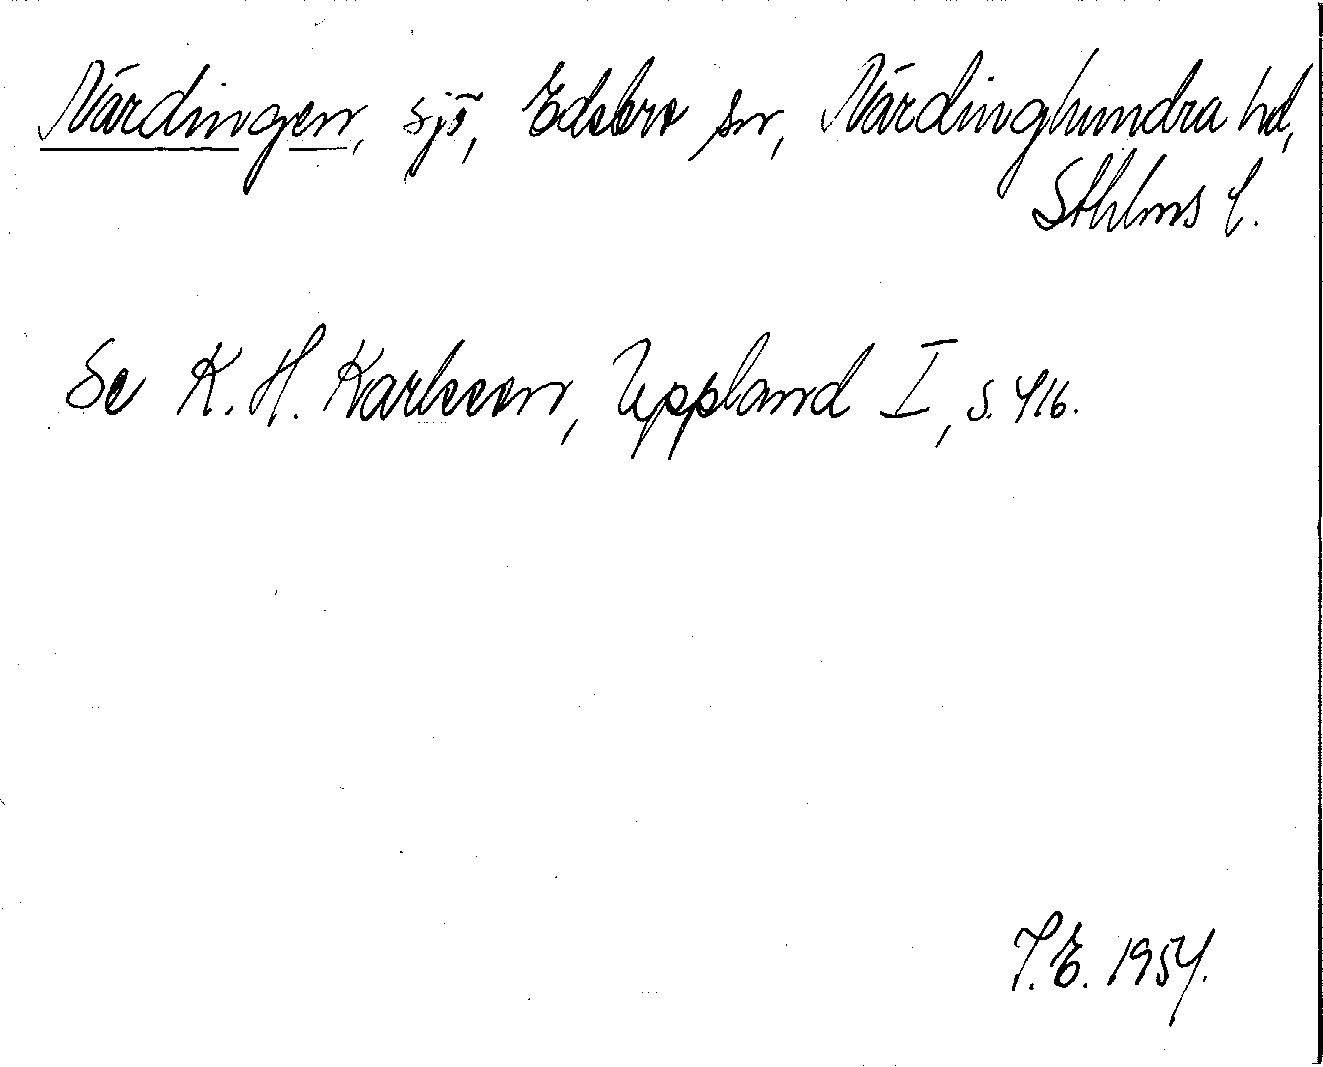 Närdingen, sjö, Edsbro sn, Närdinghundra hd,
Sthlms l.
Se K. H. Karlsson, Uppland I, s. 416.
T.E. 1954.